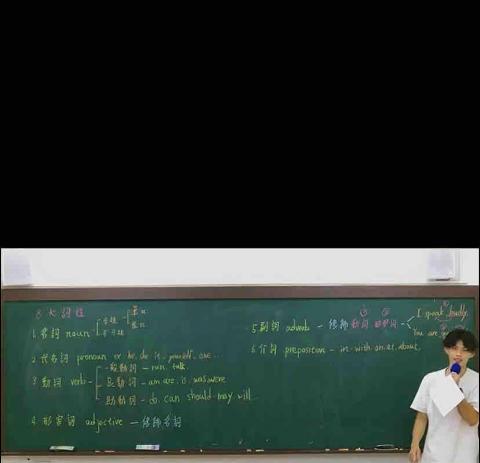 8大詞性
1.名詞 noun 可數 單n
複n
不可數
2.代名詞 pronoun
3.動詞 verb 一般動詞 - run. talk
Be動詞 - am are. is. was were
助動詞 - do can should may will
4.形容詞 adjective - 修飾名詞
5.副詞 adverb - 修飾動詞 I speak loudly.
You are
6.介詞 preposition - in. with. on. at. about